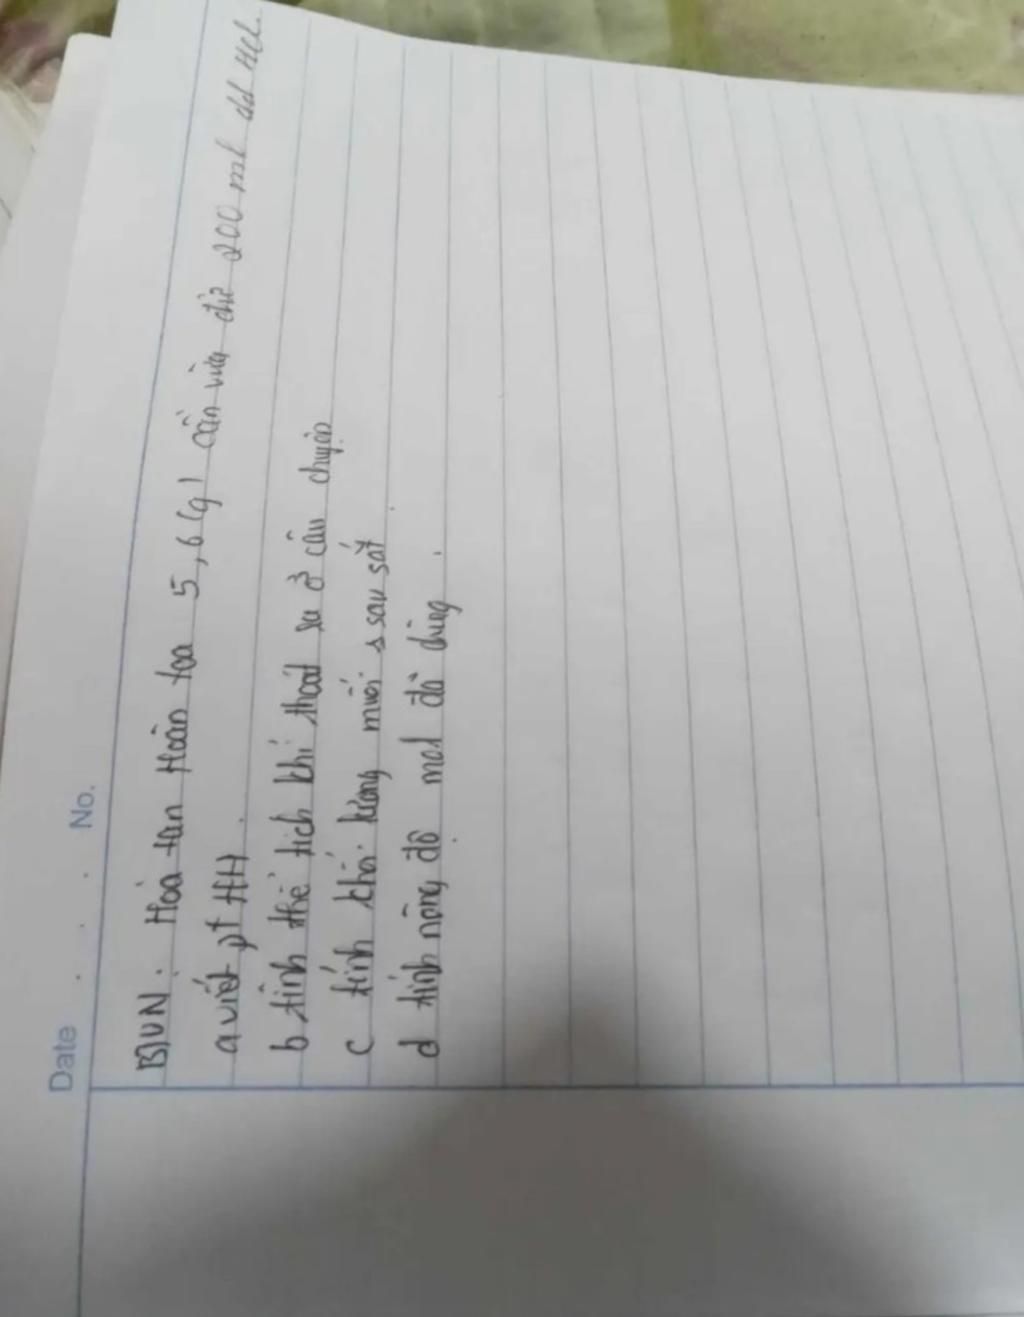 Date No.
BJVN: Hòa tan Hoàn toa 5,6(g) cần vừa đủ 200 ml dd HCl.
a viết pt HH.
b tính thể tích khí thoát ra ở câu chuyện
c tính khối lượng muối s sau sắt
d tính nồng độ mol đã dùng.